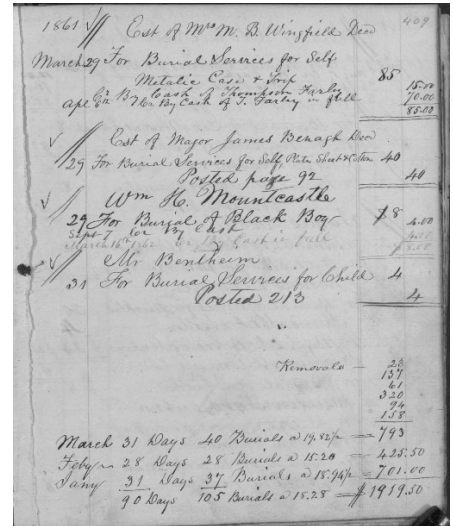 409
1861 Est of Mrs M. B. Wingfield Decd
March 29 For Burial Services for Self
Metalic Case & Trip 85
Apl 6th Cr By Cash of Thompson Farley 15.00
Cr By Cash of T. Farley in full 70.00
85.00
Est of Major James Benagh Decd
29 For Burial Services for Self, Plate, Sheet & Cotton 40
Posted page 92 40
Wm H. Mountcastle
29 For Burial of Black Boy $8
Sept 7 Cr By Cash 4.00
March 16th 1862 Cr By Cash in full 4.00
$8.00
Mr Bentheim
31 For Burial Services for Child 4
Posted 213 4
Removals 23
137
61
320
94
158
March 31 Days 40 Burials a 19.82½ = 793
Feby 28 Days 28 Burials a 15.20 = 425.50
Jany 31 Days 37 Burials a 18.94½ = 701.00
90 Days 105 Burials a 18.28 = $1919.50